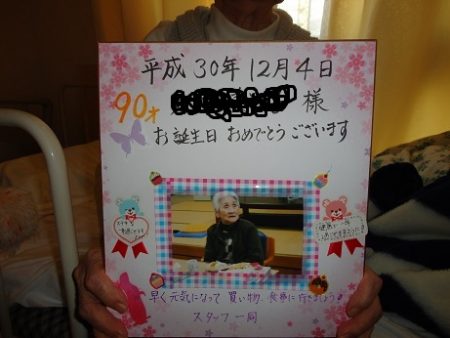 平成30年12月4日
90才
様
お誕生日 おめでとうございます
早く元気になって 買い物、食事に行きましょう
スタッフ一同